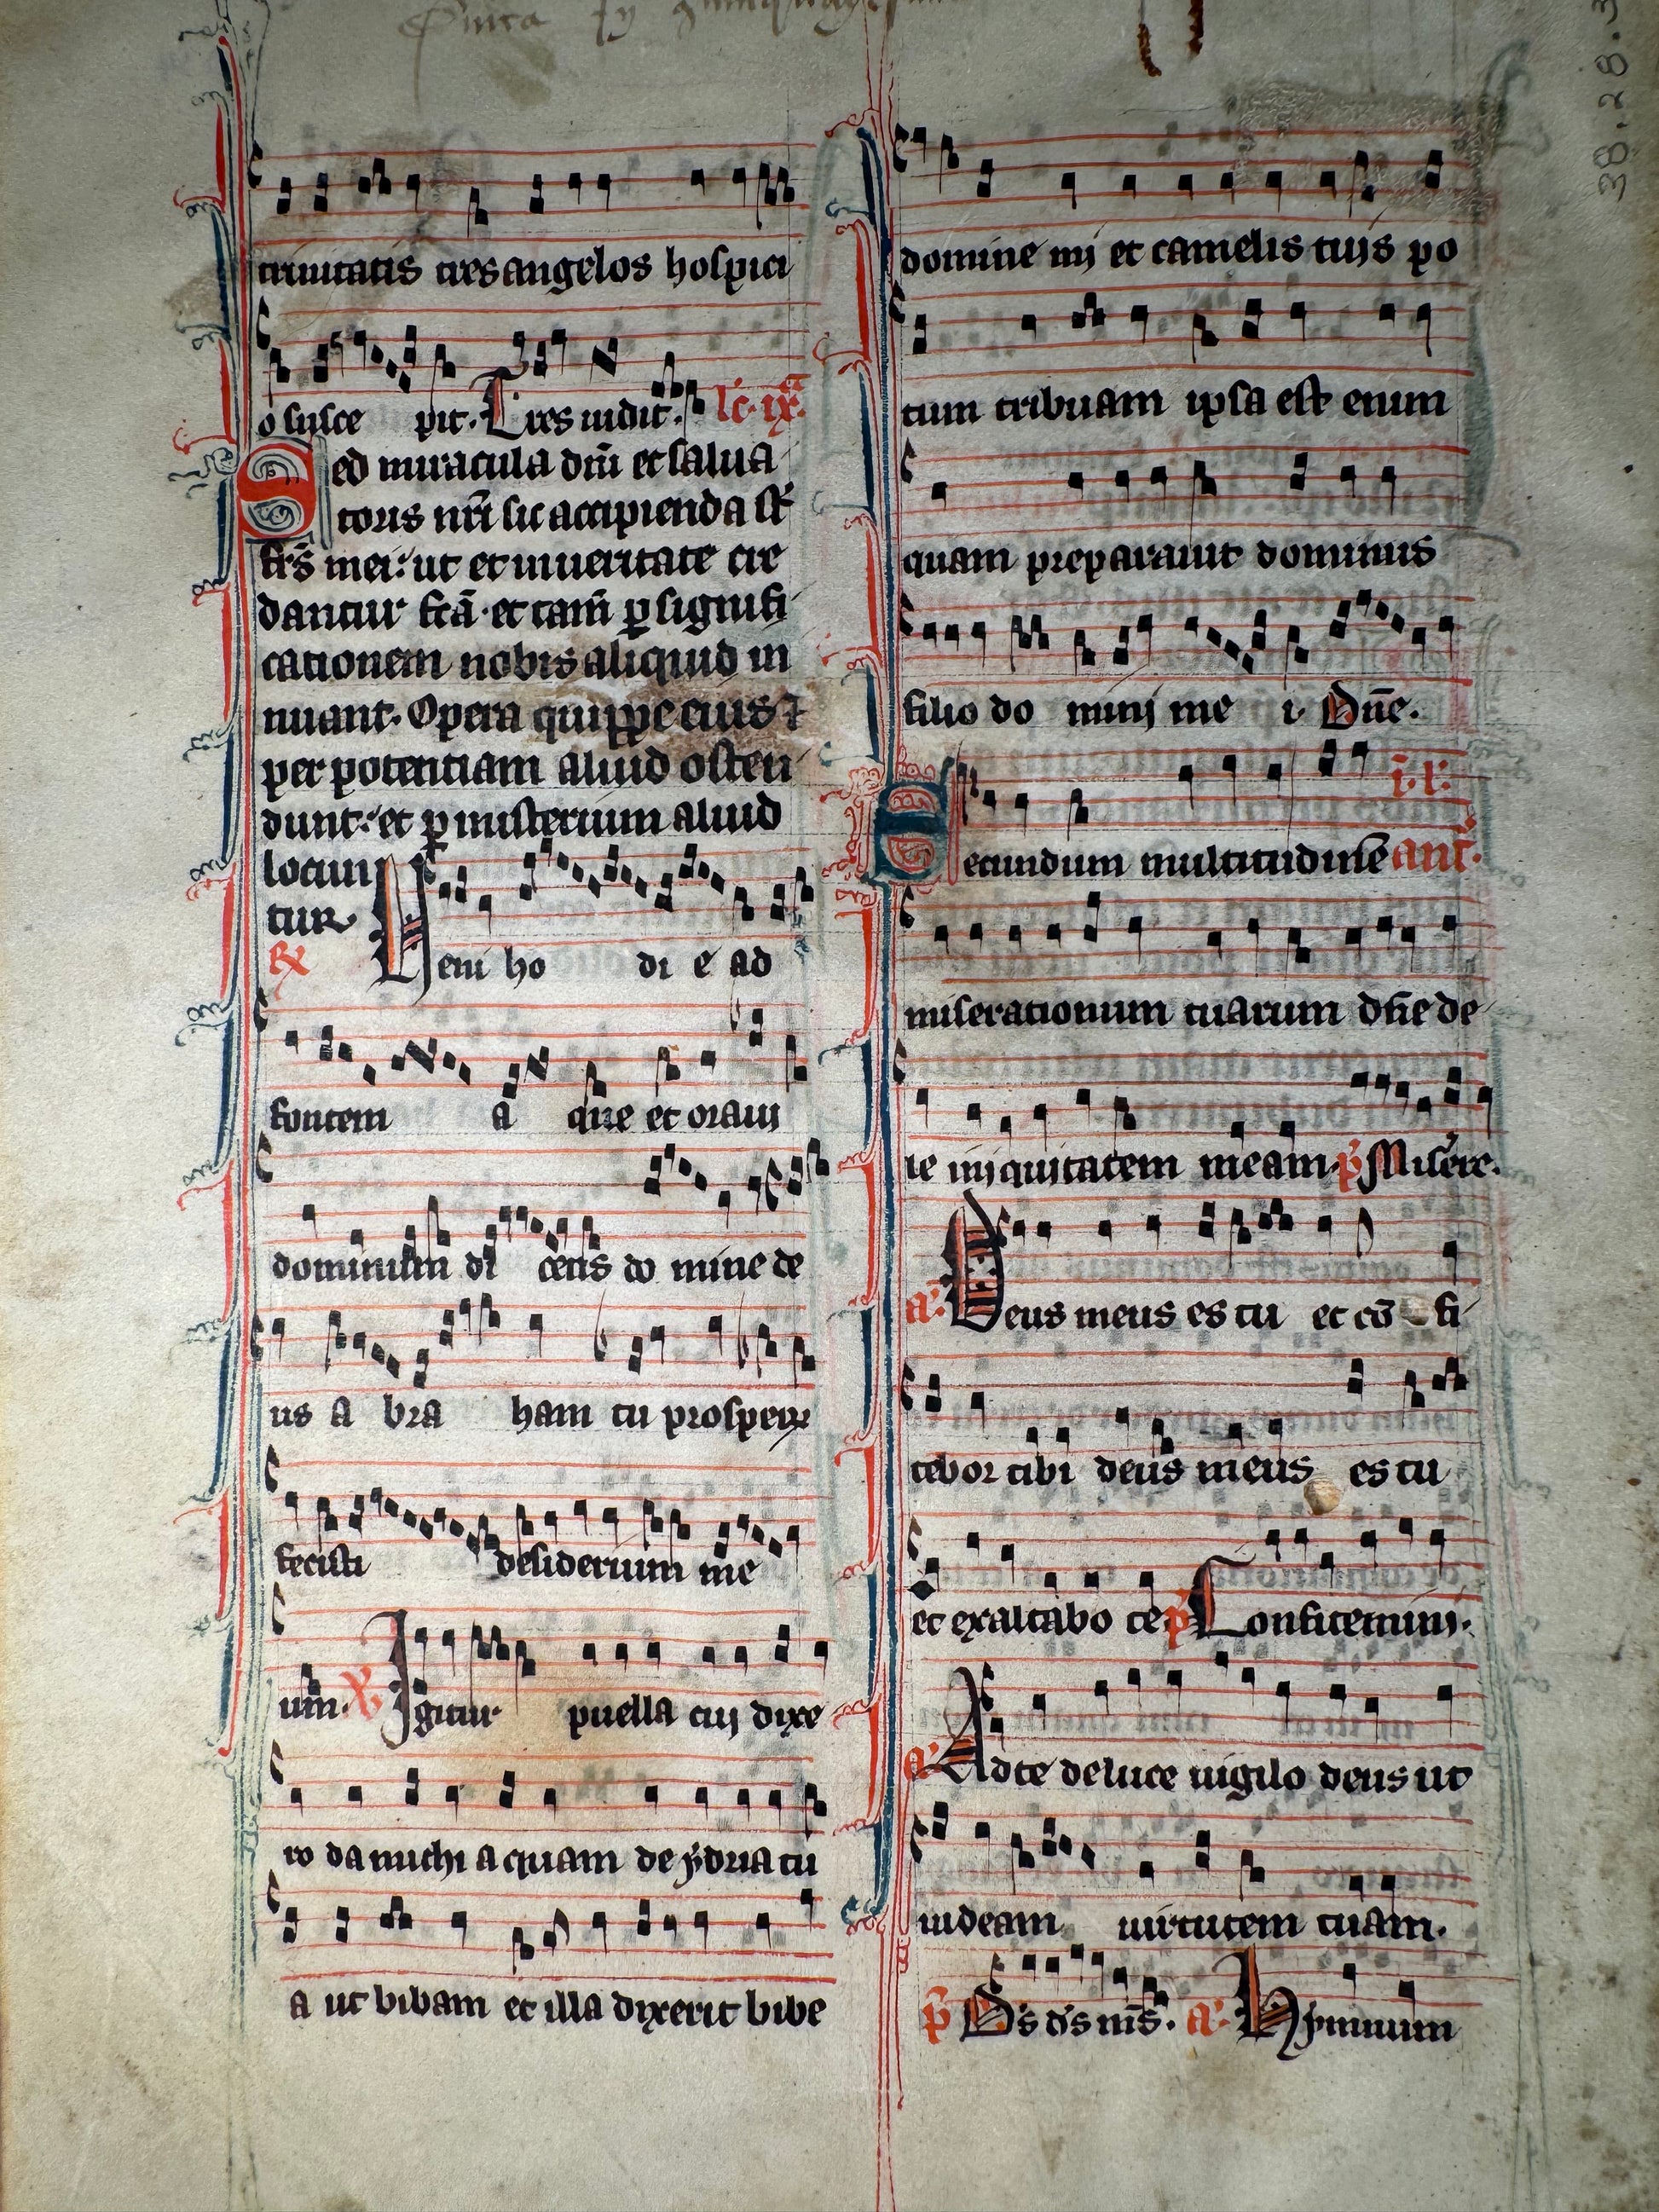 trinitatis tres angelos hospici
o susce pit. Tres uidit. lc. ix.
Sed miracula dn̄i et salua
toris nr̄i sic accipienda st̄
frs̄ mei: ut et in ueritate cre
dantur fc̄ā. et tam̄ ꝑ signifi
cationem nobis aliquid in
nuant. Opera quippe eius ⁊
per potentiam aliud osten
dunt: et ꝑ misterium aliud
locun
tur
℟ Veni ho di e ad
fontem a que et oraui
dominum di cens do mine de
us a bra ham tu prosperū
fecisti desiderium me
um. ℣ Igitur puella cuj dixe
ro da michi aquam de ydria tu
a ut bibam et illa dixerit bibe
domine mj et camelis tuis po
tum tribuam ipsa est enim
quam preparauit dominus
filio do minj me i. Dn̄e.
Secundum multitudinē ant̄.
miserationum tuarum dn̄e de
le inj quitatem meam. p̄ Misere.
a. Deus meus es tu et cō fi
tebor tibi deus meus es tu
et exaltabo te p̄ Confitemini.
a. Ad te de luce uigilo deus ut
uideam uirtutem tuam.
p̄ Ds̄ ds̄ ms̄. a. Hymnum
38.28.3